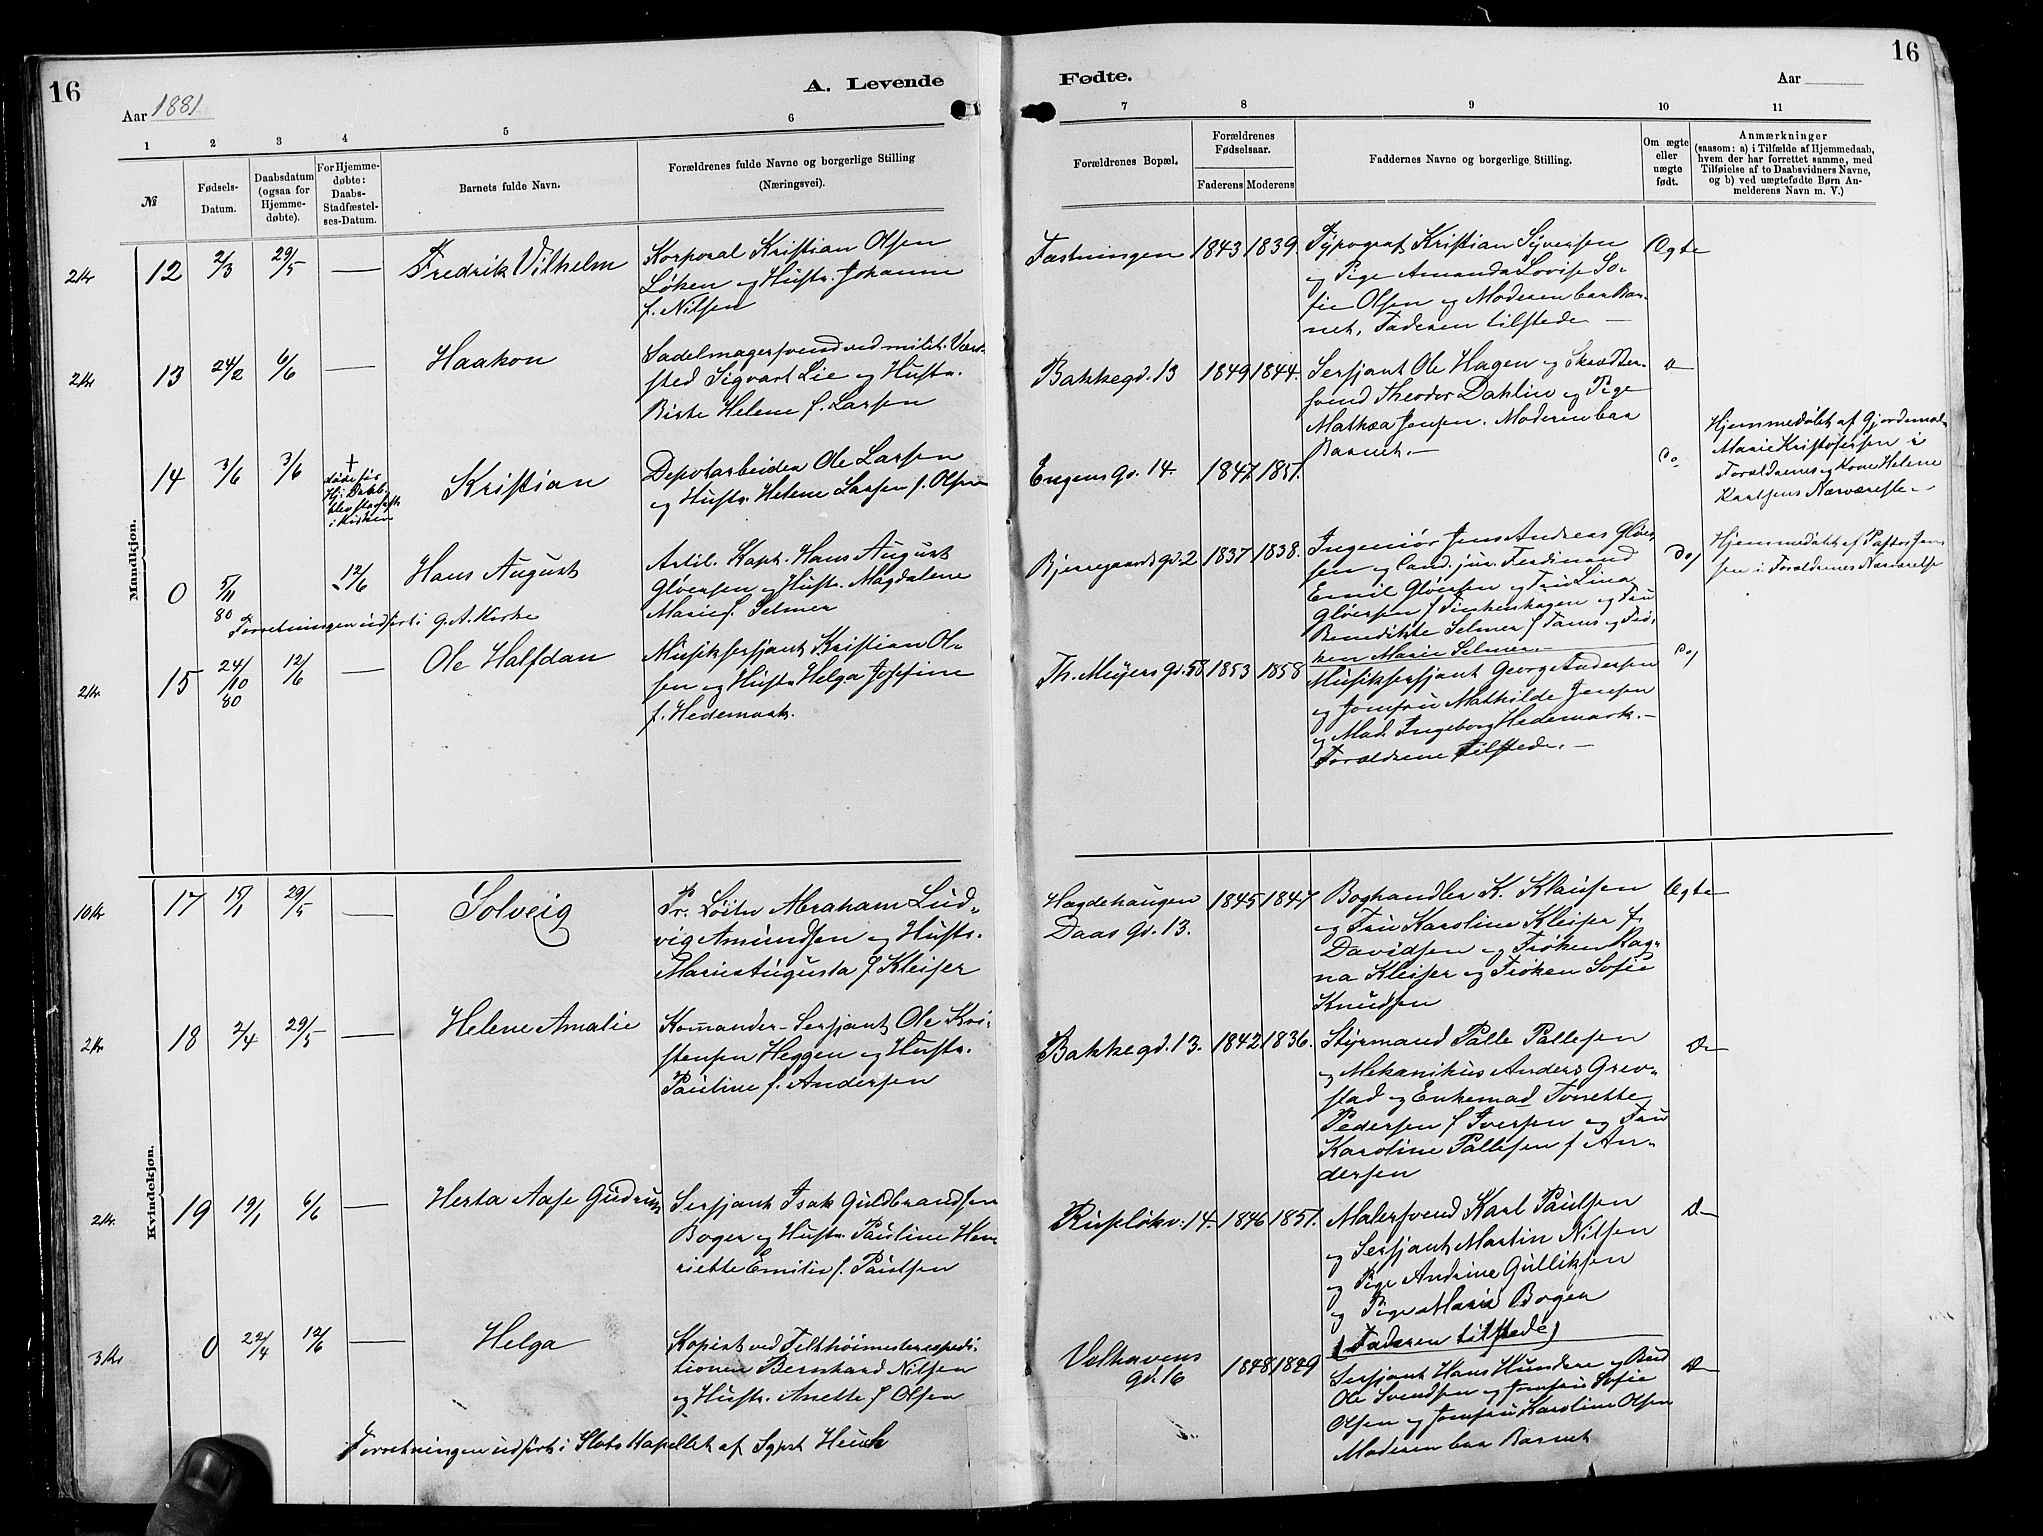 16
A. Levende
Fødte.
16
Aar 1881.
Aar
1 2 3 4 5 6 7 8 9 10 11
№
Fødsels-
Datum.
Daabsdatum
(ogsaa for
Hjemme-
døbte).
For Hjemme-
døbte:
Daabs-
Stadfæstel-
ses-Datum.
Barnets fulde Navn.
Forældrenes fulde Navne og borgerlige Stilling
(Næringsvei).
Forældrenes Bopæl.
Forældrenes
Fødselsaar.
Faderens Moderens
Faddernes Navne og borgerlige Stilling.
Om ægte
eller
uægte
født.
Anmærkninger
(saasom: a) i Tilfælde af Hjemmedaab,
hvem der har forrettet samme, med
Tilføielse af to Daabsvidners Navne,
og b) ved uægtefødte Børn An-
melderens Navn m. V.)
Mandkjøn.
2 Kr
12
2/3
29/5
—
Fredrik Vilhelm
Korporal Kristian Olsen
Løken og Hustr. Johanne
f. Nilsen
Fæstningen
1843 1839.
Typograf Kristian Syversen
og Pige Amanda Lovise So-
fie Olsen og Moderen bar Bar-
net, Faderen tilstede —
Ægte
2 Kr
13
24/2
6/6
—
Haakon
Sadelmagersvend ved milit. Værk-
sted Sigvart Lie og Hustr.
Birte Helene f. Larsen
Bakkegd. 13
1849 1844.
Sersjant Ole Hagen og Skrædder-
svend Theodor Dahlin og Pige
Mathea Jensen. Moderen bar
Barnet. —
14
3/6
3/6
+
døde før
Hj. Daab
blev stadfæst.
i Kirken
Kristian
Depotarbeider Ole Larsen
og Hustr. Helene Larsen f. Olsen
Engens gd. 14.
1847 1851.
Do
Hjemmedøbt af Gjordemod.
Marie Kristofersen i
Forældrenes og Kone Helene
Karlsens Nærværelse —
0
5/11
80
12/6
Hans August
Artil. Kapt. Hans August
Gløersen og Hustr. Magdalene
Marie f. Selmer
Forretningen udført i g. A. Kirke
Bjerregaards gd. 2
1837 1838.
Ingeniør Jens Andreas Gløer-
sen og Cand. jur. Ferdinand
Emil Gløersen og Fru Lina
Gløersen f Finkenhagen og Fru
Benedikte Selmer f Fams og Frø-
ken Marie Selmer. —
Do
Hjemmedøbt af Pastor Jen-
sen i Forældrenes Nærværelse
2 Kr.
15
24/10
80
12/6
—
Ole Halfdan
Musiksersjant Kristian Ol-
sen og Hustr. Helga Josefine
f. Hedemark.
Th. Meyers gd. 58
1853 1858
Musiksersjant Georg Andersen
og Jomfru Mathilde Jensen
og Mad. Ingeborg Hedemark. —
Forældrene tilstede. —
Do
Kvindekjøn.
10 Kr
17
15/1
29/5
—
Solveig
Pr. Løitn Abraham Lud-
vig Amundsen og Hustr.
Marie Augusta f Kleiser
Hægdehaugen
Daas gd. 13.
1845 1847.
Boghandler K. Klausen
og Fru Karoline Kleiser f.
Davidsen og Frøken Rag-
na Kleiser og Frøken Sofie
Knudsen
Ægte
2 Kr
18
2/4
29/5
—
Helene Amalie
Komander-Sersjant Ole Kri-
stensen Heggen og Hustr.
Pauline f. Andersen
Bakkegd. 13.
1842 1836.
Styrmand Palle Pallesen
og Mekanikus Anders Grev-
stad og Enkemad Torrette
Pedersen f Iversen og Fru
Karoline Pallesen f An-
dersen
2 Kr.
19
19/1
6/6
—
Herta Aase Gudrun
Sersjant Isak Guldbrandsen
Boger og Hustr. Pauline Hen-
riette Emilie f. Paulsen
Rusløkv. 14.
1846 1851.
Malersvend Karl Paulsen
og Sersjant Martin Nilsen
og Pige Andrine Gulliksen
og Pige Marie Bogen
(Faderen tilstede)
3 Kr
0
22/4
12/6
—
Helga
Kopist ved Feltthøimesterexpedi-
tionen Bernhard Nilsen
og Hustr. Anette f Olsen
Velhavens
gd. 16
1848 1849
Sersjant Hans Hundere og Bud
Ole Svendsen og Jomfru Sofie
Olsen og Jomfru Karoline Olsen
Moderen bar Barnet
Forretningen udført i SlotsKapellet af Sgpst Heuch